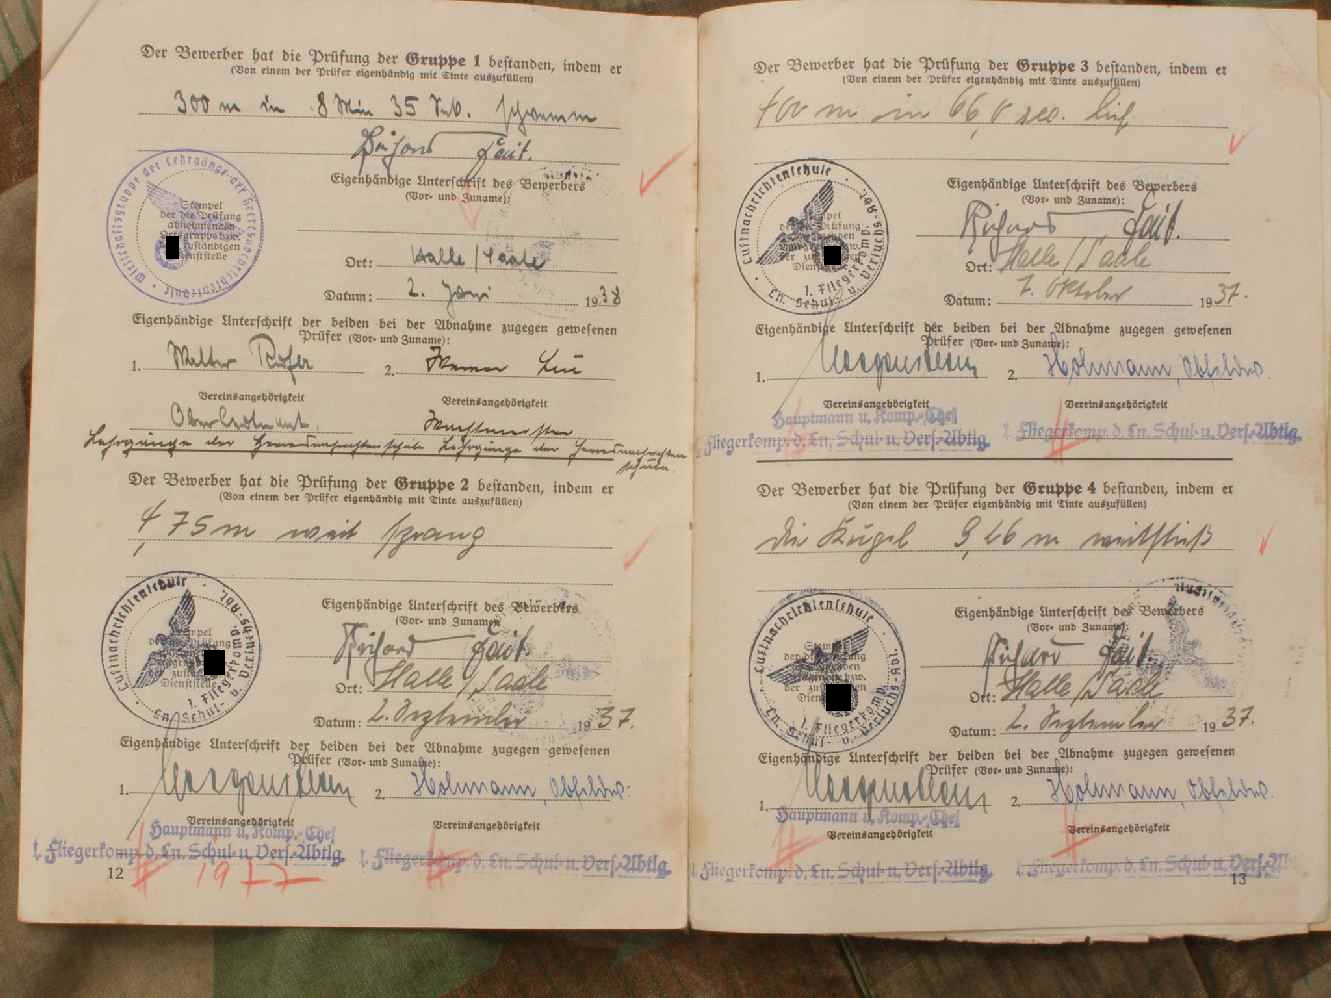 Der Bewerber hat die Prüfung der Gruppe 1 bestanden, indem er
(Von einem der Prüfer eigenhändig mit Tinte auszufüllen)
300 m in 8 Min 35 Sek. schwamm
Eigenhändige Unterschrift des Bewerbers
(Vor- und Zuname):
Stempel
der die Prüfung
abnehmenden
zuständigen
Dienststelle
Ort: Halle / Saale
Datum: 2. Juni 1938
Eigenhändige Unterschrift der beiden bei der Abnahme zugegen gewesenen
Prüfer (Vor- und Zuname):
1. Walter 2. Werner
Vereinsangehörigkeit Vereinsangehörigkeit
Oberleutnant. Wachtmeister
Lehrgänge der Heeresnachrichtenschule Lehrgänge der Heeresnachrichten
schule.
Der Bewerber hat die Prüfung der Gruppe 2 bestanden, indem er
(Von einem der Prüfer eigenhändig mit Tinte auszufüllen)
4,75 m weit sprang
Luftnachrichtenschule
Eigenhändige Unterschrift des Bewerbers
(Vor- und Zuname
Richard
Ort: Halle / Saale
Datum: 2. September 1937.
Eigenhändige Unterschrift der beiden bei der Abnahme zugegen gewesenen
Prüfer (Vor- und Zuname):
1. Morgenstern 2. Hohmann, Obfeldw.
Vereinsangehörigkeit Vereinsangehörigkeit
Hauptmann u. Komp.-Chef
1. Fliegerkomp. d. Ln. Schul- u. Vers.-Abtlg. 1. Fliegerkomp. d. Ln. Schul- u. Vers.-Abtlg.
12
Der Bewerber hat die Prüfung der Gruppe 3 bestanden, indem er
(Von einem der Prüfer eigenhändig mit Tinte auszufüllen)
400 m in 66,0 sec. lief
Luftnachrichtenschule
Eigenhändige Unterschrift des Bewerbers
(Vor- und Zuname):
Richard
Ort: Halle / Saale
Datum: 7. Oktober 1937.
Eigenhändige Unterschrift der beiden bei der Abnahme zugegen gewesenen
Prüfer (Vor- und Zuname):
1. Morgenstern 2. Hohmann, Obfeldw.
Vereinsangehörigkeit Vereinsangehörigkeit
Hauptmann u. Komp.-Chef
Fliegerkomp. d. Ln. Schul- u. Vers.-Abtlg. 1. Fliegerkomp. d. Ln. Schul- u. Vers.-Abtlg.
Der Bewerber hat die Prüfung der Gruppe 4 bestanden, indem er
(Von einem der Prüfer eigenhändig mit Tinte auszufüllen)
die Kugel m weit stieß
Luftnachrichtenschule
Eigenhändige Unterschrift des Bewerbers
(Vor- und Zuname):
Richard
Ort: Halle / Saale
Datum: 2. September 1937.
Eigenhändige Unterschrift der beiden bei der Abnahme zugegen gewesenen
Prüfer (Vor- und Zuname):
1. Morgenstern 2. Hohmann, Obfeldw.
Hauptmann u. Komp.-Chef
Vereinsangehörigkeit Vereinsangehörigkeit
1. Fliegerkomp. d. Ln. Schul- u. Vers.-Abtlg. 1. Fliegerkomp. d. Ln. Schul- u. Vers.
13